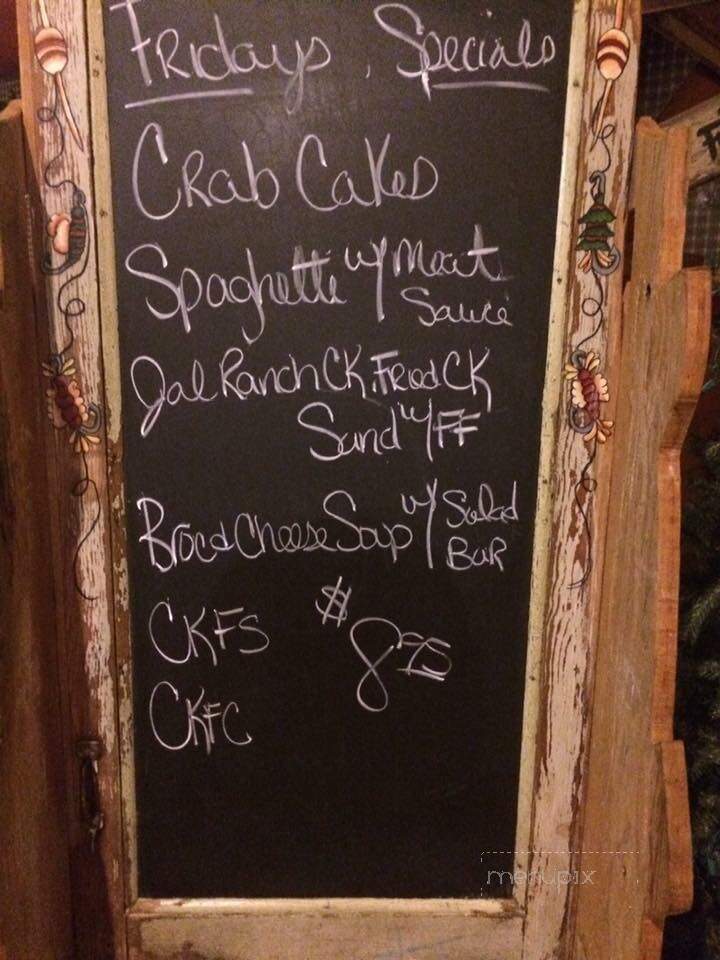 Fridays, Specials
Crab Cakes
Spaghetti w/ Meat
Sauce
Jal Ranch CK. Fried CK
Sand w/ FF
Broc & Cheese Soup w/ Salad
Bar
CKFS $8.95
CKFC
menupix